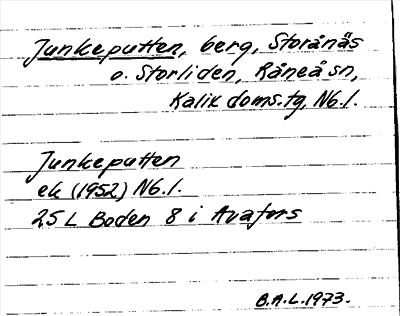 Junkeputten, berg, Storånäs
o. Storliden, Råneå sn,
Kalix doms.tg, Nb.l.
Junkeputten
ek (1952) Nb.l.
25 L Boden 8 i Avafors
B.A.L. 1973.